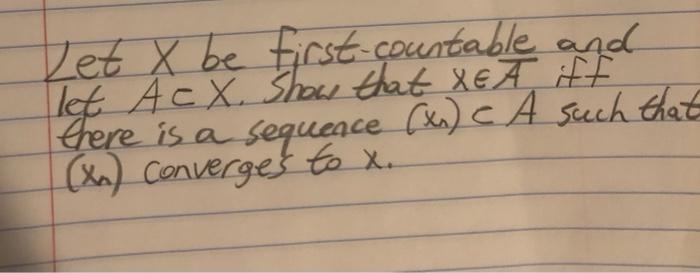 Let X be first-countable and
let A ⊂ X. Show that x ∈ A̅ iff
there is a sequence (xₙ) ⊂ A such that
(xₙ) converges to x.